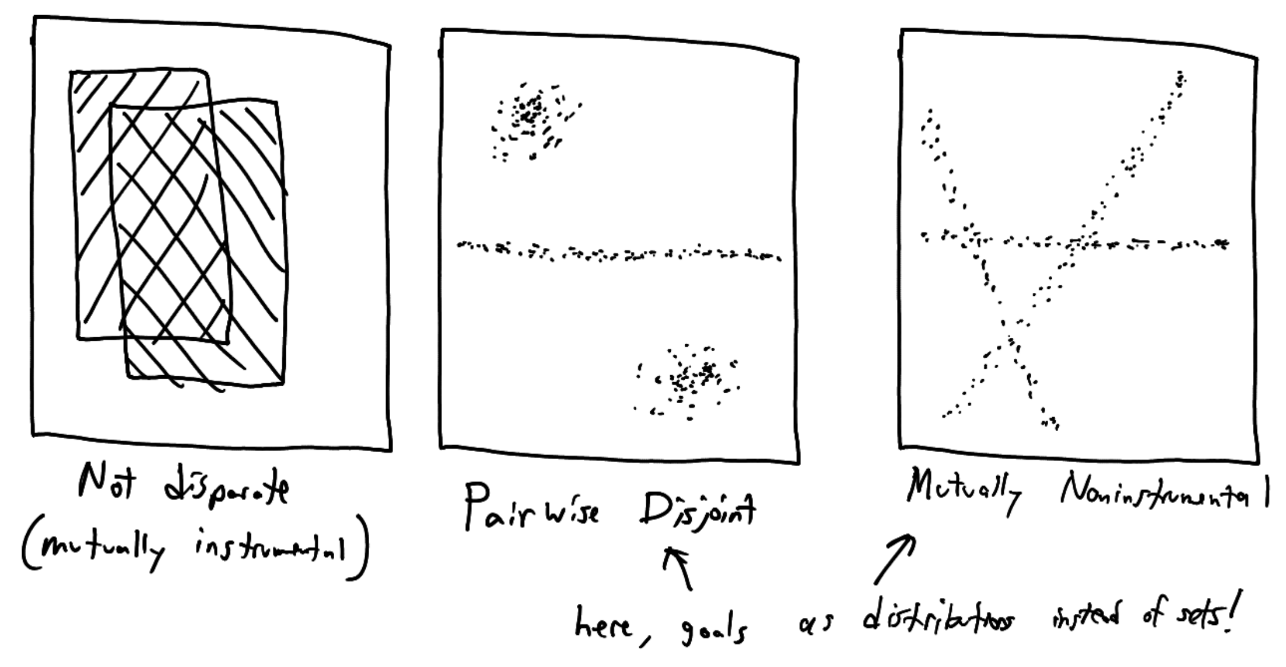 Not disparate
(mutually instrumental)
Pairwise Disjoint
Mutually Noninstrumental
here, goals as distributions instead of sets!